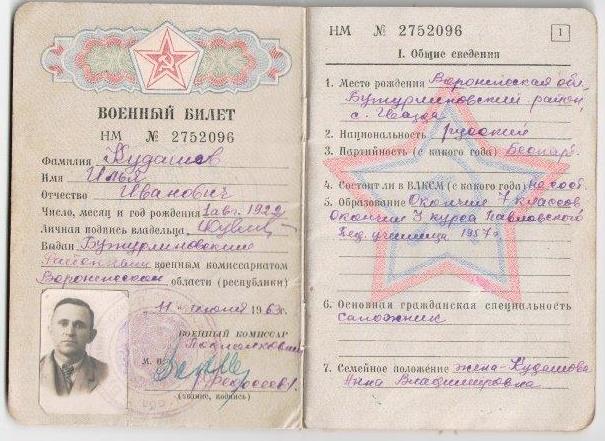 ВОЕННЫЙ БИЛЕТ
НМ № 2752096
Фамилия Кудашов
Имя Илья
Отчество Иванович
Число, месяц и год рождения 1 авг. 1922
Личная подпись владельца
Выдан Бутурлиновским
Райвоенным военным комиссариатом
Воронежской области (республики)
11 июня 1963 г.
ВОЕННЫЙ КОМИССАР
Подполковник
М. П.
Федосеев
(звание, подпись)
НМ № 2752096 1
I. Общие сведения
1. Место рождения Воронежская обл.
Бутурлиновский район,
с. Гвазда
2. Национальность русский
3. Партийность (с какого года) Беспарт.
4. Состоит ли в ВЛКСМ (с какого года) не сост.
5. Образование Окончил 7 классов
Окончил 3 курса Павловского
Пед. училища 1957 г.
6. Основная гражданская специальность
сапожник
7. Семейное положение жена - Кудашова
Анна Владимировна